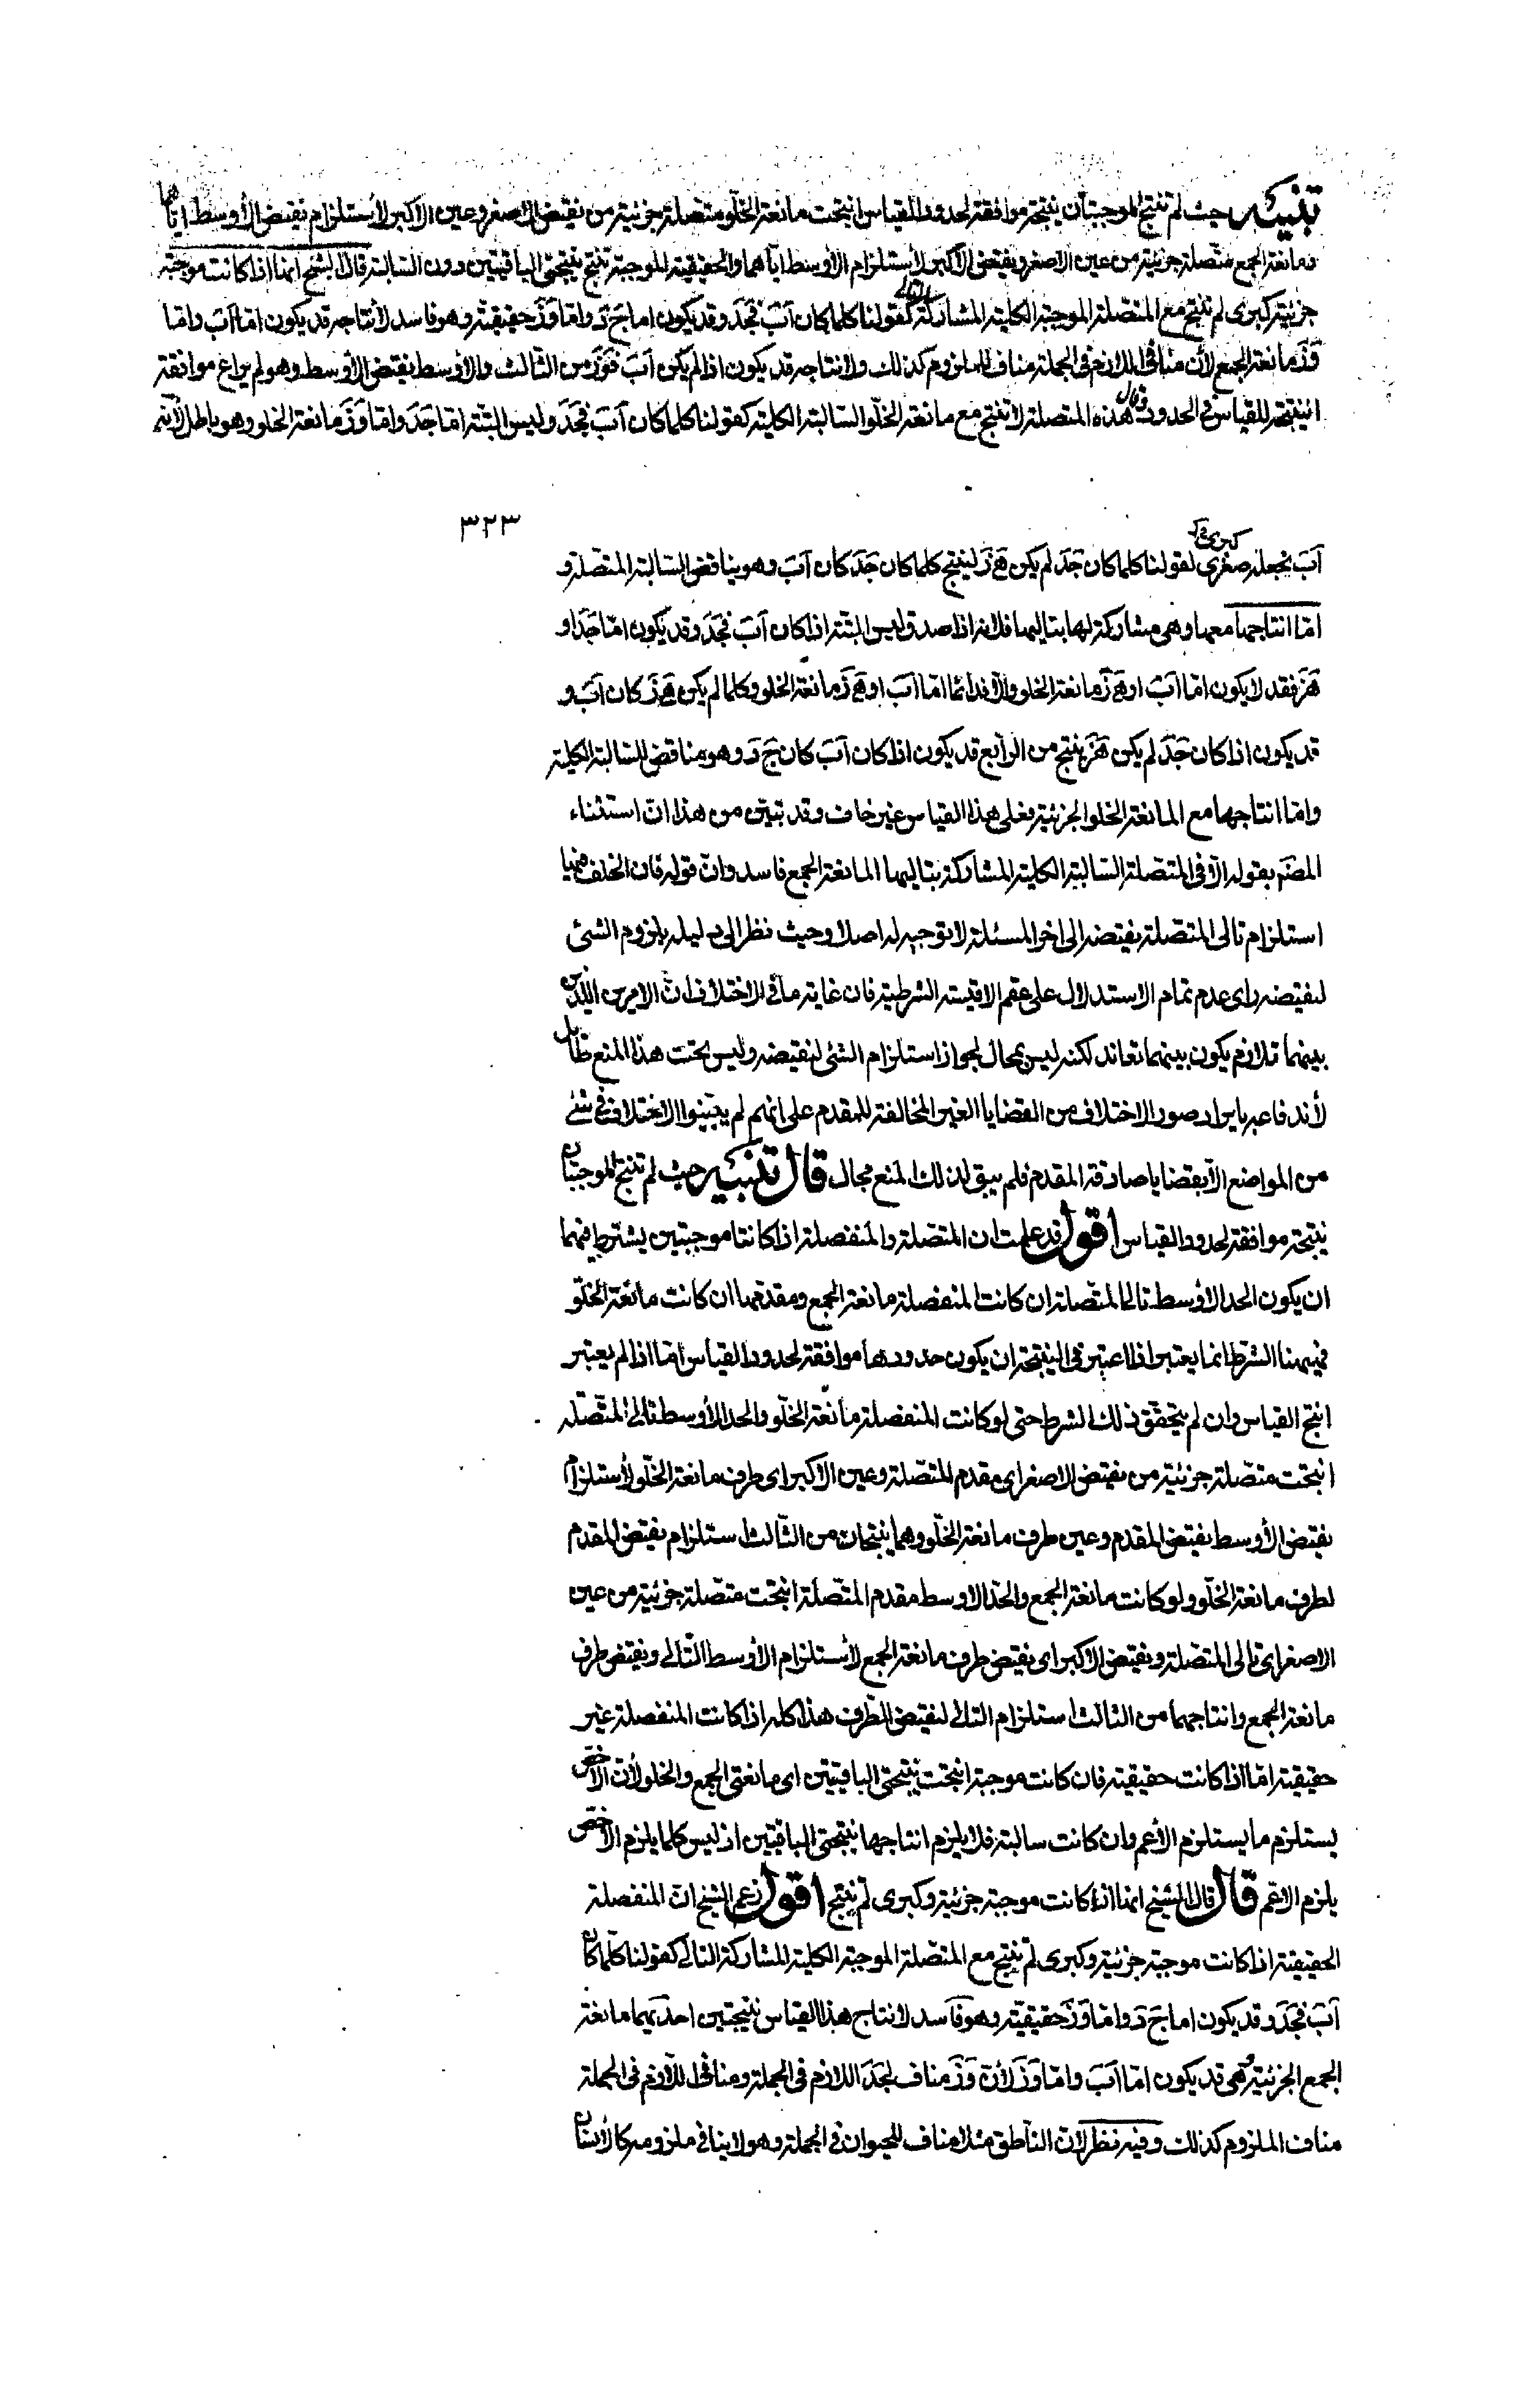 تنبيه حيث لم تنتج الموجبتان نتيجة موافقة لحدود القياس انتجت مانعة الخلو متصلة جزئية من نقيض الاصغر وعين الاكبر لاستلزام نقيض الأوسط اياهما
ومانعة الجمع متصلة جزئية من عين الاصغر ونقيض الاكبر لاستلزام الأوسط اياهما والحقيقية الموجبة تنتج نتيجتى الباقيتين دون السالبة قال الشيخ انها اذا كانت موجبة
جزئية كبرى لم تنتج مع المتصلة الموجبة الكلية المشاركة التالى كقولنا كلما كان آب فجد وقد يكون اما جد واما وز حقيقية وهو فاسد لانتاجه قد يكون اما آب واما
وز مانعة الجمع لأن منافى اللازم فى الجملة مناف للملزوم كذلك ولانتاجه قد يكون اذا لم يكن آب فوز من الثالث والأوسط نقيض الأوسط وهو لم يراع موافقة
النتيجة للقياس فى الحدود وقال هذه المتصلة لا تنتج مع مانعة الخلو السالبة الكلية كقولنا كلما كان آب فجد وليس البتة اما جد واما وز مانعة الخلو وهو باطل لأنه
٣٢٣
آب نجعله صغرى لقولنا كلما كان جد لم يكن هز لينتج كلما كان جد كان آب وهو يناقض السالبة المتصلة و
اما انتاجها معها وهى مشاركة لها بتاليها فلانه اذا صدق ليس البتة اذا كان آب فجد وقد يكون اما جد او
هز فقد لا يكون اما آب او هز مانعة الخلو والا فدائما اما آب او هز مانعة الخلو وكلما لم يكن هز كان آب و
قد يكون اذا كان جد لم يكن هز ينتج من الرابع قد يكون اذا كان آب كان ج د وهو مناقض للسالبة الكلية
واما انتاجها مع المانعة الخلو الجزئية فعلى هذا القياس غير خاف وقد تبين من هذا ان استثناء
المصنم بقوله الا فى المتصلة السالبة الكلية المشاركة بتاليها المانعة الجمع فاسد وان قوله فان الخلف فيها
استلزام تالى المتصلة نقيضه الى اخر المسئلة لا توجيه له اصلا وحيث نظر الى دليله بلزوم الشئ
لنقيضه راى عدم تمام الاستدلال على عقم الاقيسة الشرطية فان غاية ما فى الاختلاف ان الامرين اللذين
بينهما تلازم يكون بينهما تعاند لكنه ليس بمحال لجواز استلزام الشئ لنقيضه وليس تحت هذا المنع طائل
لأندفاعه بايراد صور الاختلاف من القضايا الغير المخالفة للمقدم على انهم لم يبينوا الاختلاف فى شئ
من المواضع الا بقضايا صادقة المقدم فلم يبق لذلك المنع مجال قال تنبيه حيث لم تنتج الموجبتان
نتيجة موافقة لحدود القياس اقول قد علمت ان المتصلة والمنفصلة اذا كانتا موجبتين يشترط فيهما
ان يكون الحد الأوسط تالى المتصلة ان كانت المنفصلة مانعة الجمع ومقدمها ان كانت مانعة الخلو
فهيهنا الشرط انما يعتبر اذا اعتبر فى النتيجة ان يكون حدودها موافقة لحدود القياس اما اذا لم يعتبر
انتج القياس وان لم يتحقق ذلك الشرط حتى لو كانت المنفصلة مانعة الخلو والحد الأوسط تالى المتصلة
انتجت متصلة جزئية من نقيض الاصغر اى مقدم المتصلة وعين الاكبر اى طرف مانعة الخلو لأستلزام
نقيض الأوسط نقيض المقدم وعين طرف مانعة الخلو وهما ينتجان من الثالث استلزام نقيض المقدم
لطرف مانعة الخلو ولو كانت مانعة الجمع والحد الاوسط مقدم المتصلة انتجت متصلة جزئية من عين
الاصغر اى تالى المتصلة ونقيض الاكبر اى نقيض طرف مانعة الجمع لأستلزام الأوسط التالى ونقيض طرف
مانعة الجمع وانتاجهما من الثالث استلزام التالى لنقيض الطرف هذا كله اذا كانت المنفصلة غير
حقيقية اما اذا كانت حقيقية فان كانت موجبة انتجت نتيجتى الباقيتين اى مانعتى الجمع والخلو لأن الأخص
يستلزم ما يستلزم الأعم وان كانت سالبة فلا يلزم انتاجها نتيجتى الباقيتين اذ ليس كلما يلزم الأخص
يلزم الاعم قال قال الشيخ انها اذا كانت موجبة جزئية وكبرى لم ينتج اقول زعم الشيخ ان المنفصلة
الحقيقية اذا كانت موجبة جزئية وكبرى لم ينتج مع المتصلة الموجبة الكلية المشاركة التالى كقولنا كلما كان
آب فجد وقد يكون اما ج د واما وز حقيقية وهو فاسد لانتاج هذا القياس نتيجتين احديهما مانعة
الجمع الجزئية وهى قد يكون اما آب واما وز لأن وز مناف لجد اللازم فى الجملة ومنافى اللازم فى الجملة
مناف الملزوم كذلك وفيه نظر لان الناطق مثلا مناف للحيوان فى الجملة وهو لا ينافى ملزومه كالأنسان